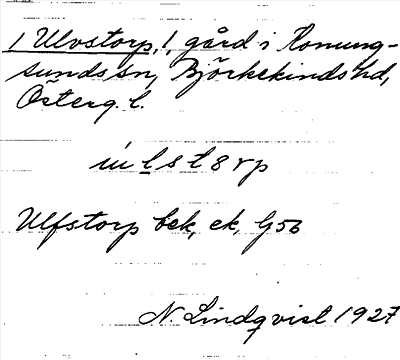 1 Ulvstorp, 1, gård i Konung-
sunds sn, Björkekinds hd,
Österg. l.
ú l s t 8 r p
Ulfstorp bek, ek, G56
N. Lindqvist 1927